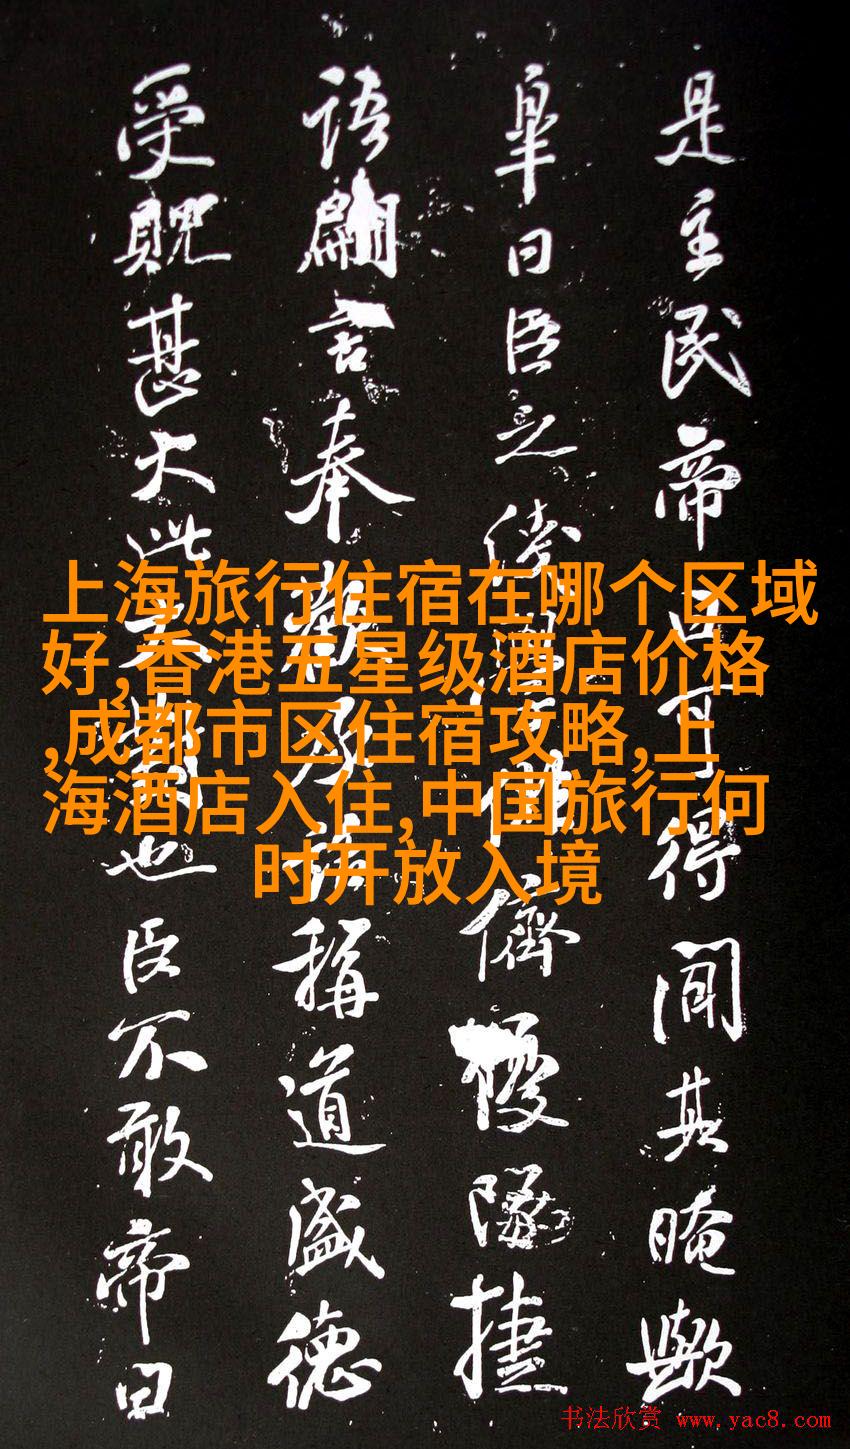 是主民帝曰可得聞其晻歟
皐曰臣之儕優隊捷
語言奉觀稱道盛德
受貺甚大此也臣不敢帝曰
上海旅行住宿在哪个区域
好,香港五星级酒店价格
,成都市区住宿攻略,上
海酒店入住,中国旅行何
时开放入境
书法欣赏 www.yac8.com